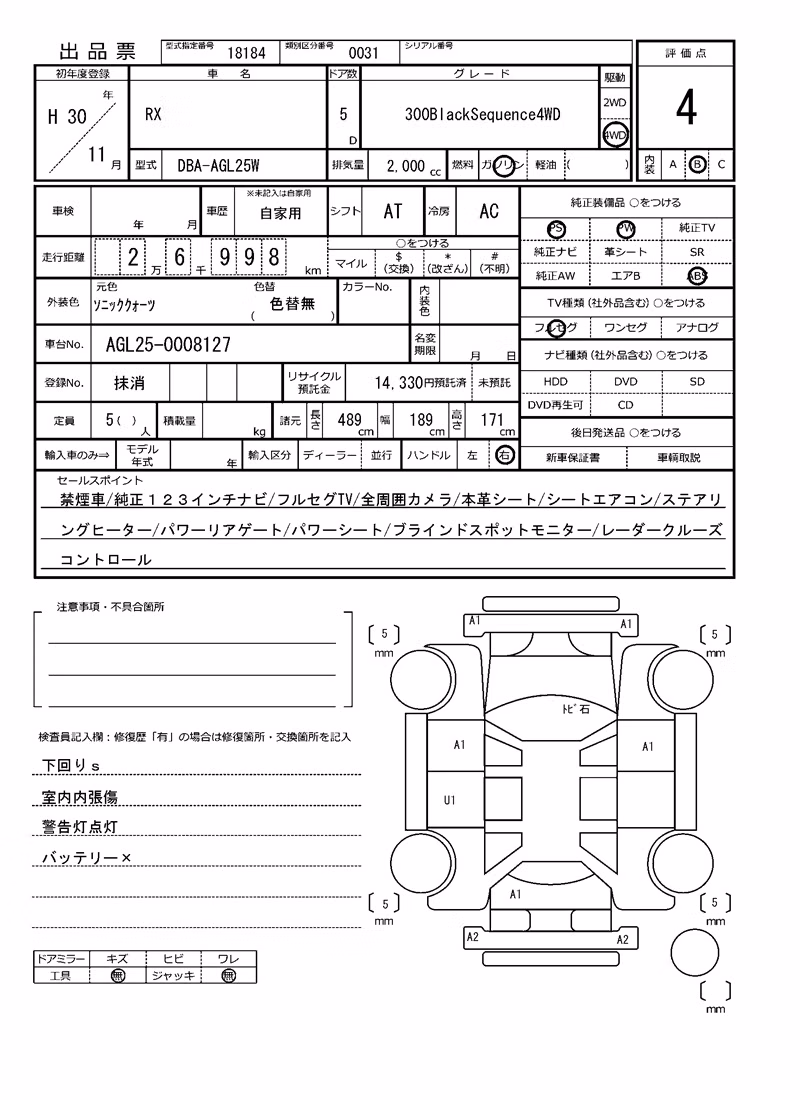 出品票 型式指定番号 18184 類別区分番号 0031 シリアル番号
評価点
4
内装 A B C
初年度登録 車名 ドア数 グレード 駆動
H 30 年 11 月 RX 5 D 300BlackSequence4WD 2WD 4WD
型式 DBA-AGL25W 排気量 2,000 cc 燃料 ガソリン 軽油 ( )
車検 年 月 車歴 ※未記入は自家用 自家用 シフト AT 冷房 AC
走行距離 2 万 6 千 9 9 8 km ○をつける
マイル $(交換) *(改ざん) #(不明)
外装色 元色 ソニッククォーツ 色替 ( 色替無 ) カラーNo. 内装色
車台No. AGL25-0008127 名変期限 月 日
登録No. 抹消 リサイクル預託金 14,330円預託済 未預託
定員 5( ) 人 積載量 kg 諸元 長さ 489 cm 幅 189 cm 高さ 171 cm
輸入車のみ⇒ モデル年式 年 輸入区分 ディーラー 並行 ハンドル 左 右
純正装備品 ○をつける
PS PW 純正TV
純正ナビ 革シート SR
純正AW エアB ABS
TV種類(社外品含む)○をつける
フルセグ ワンセグ アナログ
ナビ種類(社外品含む)○をつける
HDD DVD SD
DVD再生可 CD
後日発送品 ○をつける
新車保証書 車輌取説
セールスポイント
禁煙車/純正１２３インチナビ/フルセグTV/全周囲カメラ/本革シート/シートエアコン/ステアリ
ングヒーター/パワーリアゲート/パワーシート/ブラインドスポットモニター/レーダークルーズ
コントロール
注意事項・不具合箇所
検査員記入欄：修復歴「有」の場合は修復箇所・交換箇所を記入
下回りｓ
室内内張傷
警告灯点灯
バッテリー×
ドアミラー キズ ヒビ ワレ
工具 無 ジャッキ 無
A1 A1
5 mm 5 mm
ﾄﾋﾞ石
A1 A1
U1
A1
5 mm 5 mm
A2 A2
mm